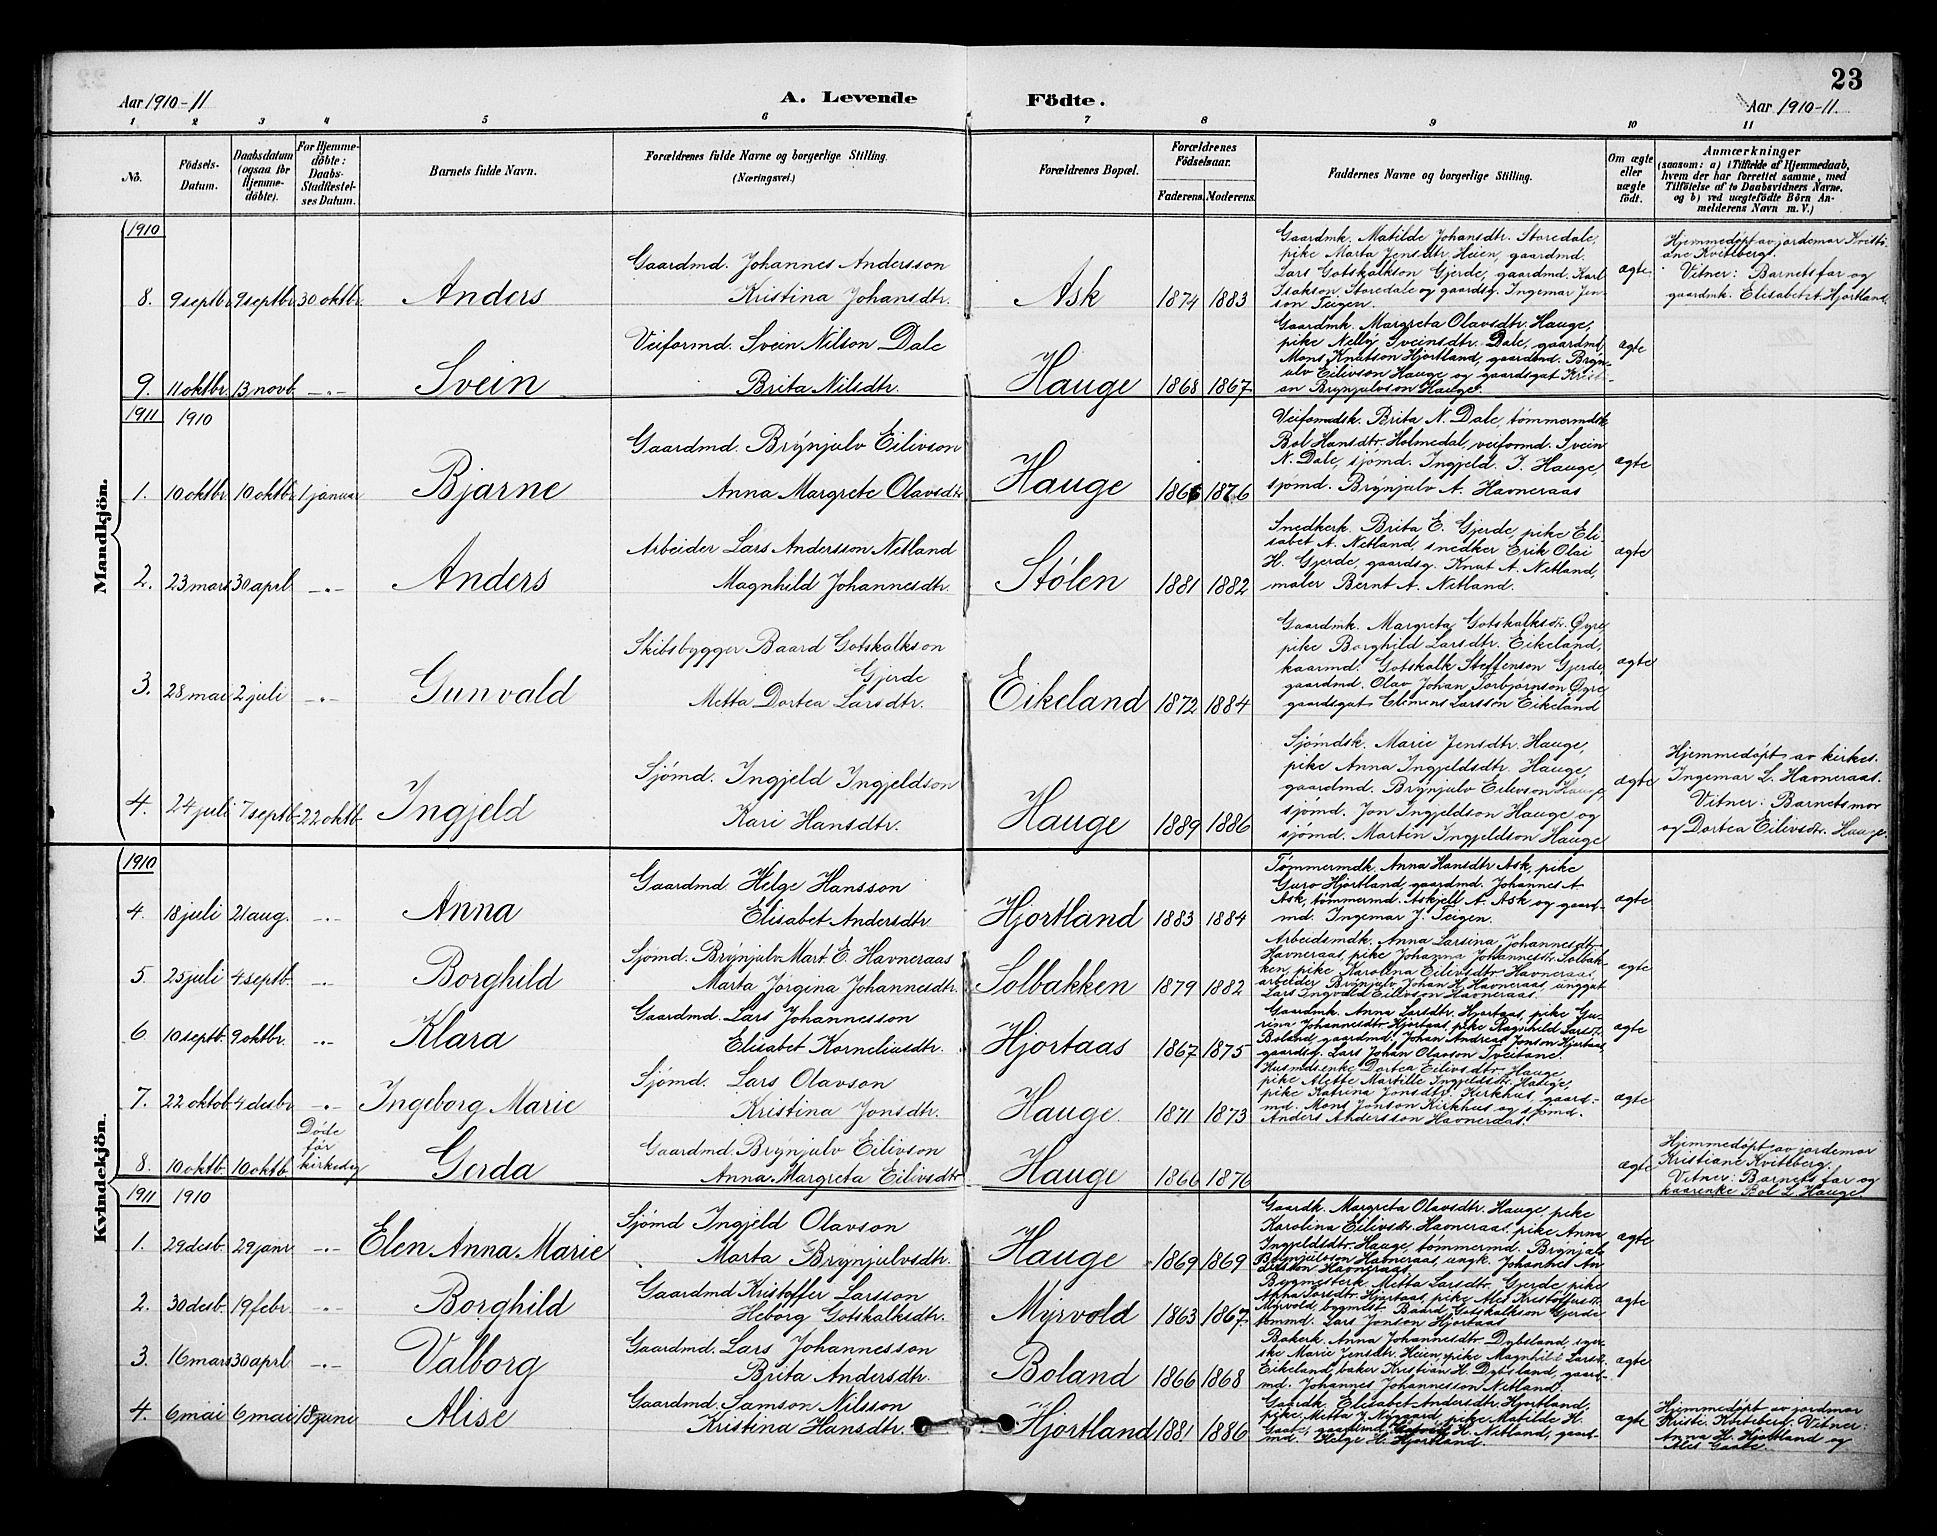 23
Aar 1910-11
A. Levende Födte.
Aar 1910-11.
1 2 3 4 5 6 7 8 9 10 11
No.
Födsels-Datum.
Daabsdatum (ogsaa for Hjemme-döbte).
For Hjemme-döbte: Daabs-Stadfæstel-ses Datum.
Barnets fulde Navn.
Forældrenes fulde Navne og borgerlige Stilling. (Næringsvei.)
Forældrenes Bopæl.
Forældrenes Födselsaar.
Faderens. Moderens.
Faddernes Navne og borgerlige Stilling.
Om ægte eller uægte født.
Anmærkninger
(saasom: a) i Tilfælde af Hjemmedaab,
hvem der har forrettet samme, med
Tilföielse af to Daabsvidners Navne.
og b) ved uægtefödte Börn An-
melderens Navn m. V.)
Mandkjön.
1910
8. 9 septbr. 9 septbr. 30 oktbr. Anders
Gaardmd. Johannes Andersson
Kristina Johansdtr.
Ask 1874 1883
Gaardmk. Matilde Johansdtr. Storedale,
pike Marta Jensdtr. Heien, gaardmd.
Lars Gotskalkson Gjerde, gaardmd. Karl
Isakson Storedale og gaardsg. Ingemar Jen-
son Teigen.
ægte
Hjemmedøpt av jordemor Kristi-
ane Kviteberg.
Vitner: Barnets far og
gaardmk. Elisabet A. Hjortland.
9. 11 oktbr. 13 novb. -"- Svein
Veiformd. Svein Nilson Dale
Brita Nilsdtr.
Hauge 1868 1867
Gaardmk. Margreta Olavsdtr. Hauge,
pike Nelly Sveinsdtr. Dale, gaardmd.
Mons Knutson Hjortland, gaardmd. Bryn-
julv Eilivson Hauge og gaardsgut Krist-
an Brynjulvson Hauge.
ægte
1911 1910
1. 10 oktbr. 10 oktbr. 1 januar Bjarne
Gaardmd. Brynjulv Eilivson
Anna Margrete Olavsdtr.
Hauge 1866 1876
Veiformdsk. Brita N. Dale, tømmermdsk.
Bol Hansdtr. Holmedal, veiformd. Svein
N. Dale, sjømd. Ingjeld I. Hauge,
sjømd. Brynjulv A. Havneraas
ægte
2. 23 mars 30 aprl. -"- Anders
Arbeider Lars Andersson Netland
Magnhild Johannesdtr.
Stølen 1881 1882
Snedkerk. Brita E. Gjerde, pike Eli-
sabet A. Netland, snedker Erik Olai
H. Gjerde, gaardsg. Knut A. Netland,
maler Bernt A. Netland.
ægte
3. 28 mai 2 juli -"- Gunvald
Skibsbygger Baard Gotskalkson
Gjerde
Metta Dortea Larsdtr.
Eikeland 1872 1884
Gaardmk. Margreta Gotskalksdtr. Øyre,
pike Borghild Larsdtr. Eikeland,
kaarmd. Gotskalk Steffenson Gjerde,
gaardmd. Olav Johan Torbjørnson Øyre
gaardsgat. Clemens Larsson Eikeland
ægte
4. 24 juli 7 septb. 22 oktb. Ingjeld
Sjømd. Ingjeld Ingjeldson
Kari Hansdtr.
Hauge 1889 1886
Sjømdsk. Marie Jensdtr. Hauge,
pike Anna Ingjeldsdtr. Hauge,
gaardmd. Brynjulv Eilivson Hauge,
sjømd. Jon Ingjeldson Hauge og
sjømd. Martin Ingjeldson Hauge
ægte
Hjemmedøpt av kirkes.
Ingemar L. Havneraas.
Vitner: Barnets mor
og Dortea Eilivsdtr. Hauge.
Kvindekjön.
1910
4. 18 juli 21 aug. -"- Anna
Gaardmd Helge Hansson
Elisabet Andersdtr.
Hjortland 1883 1884
Tømmermdk. Anna Hansdtr Ask, pike
Guro Hjortland, gaardmd. Johannes A
Ask, tømmermd. Askjell A. Ask og gaard-
md. Ingemar J. Teigen.
ægte
5. 25 juli 4 septb. -"- Borghild
Sjømd. Brynjulv Mart. E. Havneraas
Marta Jørgina Johannesdtr.
Solbakken 1879 1882
Arbeidsmdk. Anna Larsina Johannesdtr
Havneraas, pike Johanna Johannesdtr. Solbak-
ken, pike Karolina Eilivsdtr Havneraas,
arbeider Brynjulv Johan H. Havneraas, unggut
Lars Ingvald Eilivson Havneraas.
ægte
6. 10 septb. 9 oktbr. -"- Klara
Gaardmd. Lars Johannesson
Elisabet Korneliusdtr.
Hjortaas 1867 1875
Gaardmk. Anna Larsdtr. Hjortaas, pike Gu-
rina Johannesdtr Hjortaas, pike Ragnhild Larsdt.
Boland, gaardmd. Johan Andreas Jonson Hjortaas,
gaardsg. Lars Johan Olavson Tveitane.
ægte
7. 22 oktob. 4 desbr. -"- Ingeborg Marie
Sjømd. Lars Olavson
Kristina Jonsdtr.
Hauge. 1871 1873
Husmdsenke Dortea Eilivsdtr Hauge,
pike Alette Martille Ingjeldsdtr. Hauge,
pike Katrina Jonsdtr. Kirkhus, gaard-
md. Mons Jonson Kirkhus og sjømd.
Anders Andersson Havneraas.
ægte
8. 10 oktb. 10 oktb. Døde før kirkedøp Gerda
Gaardmd. Brynjulv Eilivson
Anna Margreta Eilivsdtr
Hauge 1866 1876
ægte
Hjemmedøpt av jordemor
Kristiane Kviteberg.
Vitner: Barnets far og
kaarenke Bol L. Hauge
1911 1910
1. 29 desb. 29 janr -"- Elen Anna Marie
Sjømd Ingjeld Olavson
Marta Brynjulvsdtr.
Hauge 1869 1869
Gaardk. Margreta Olavsdtr. Hauge, pike
Karolina Eilivsdtr. Havneraas, pike Anna
Ingjeldsdtr. Hauge, tømmermd. Brynjulv
Brynjulvson Havneraas, ungk. Johannes An-
dersson Havneraas.
ægte
2. 30 desb. 19 febr. -"- Borghild
Gaardmd Kristoffer Larsson
Heborg Gotskalksdtr.
Myrvold 1863 1867
Bygmesterk. Metta Larsdtr. Gjerde, pike
Anna Larsdtr. Hjortaas, pike Ales Kristoffersdtr.
Myrvold, bygmest. Baard Gotskalkson Gjerde
tømmd. Lars Jonson Hjortaas
ægte
3. 16 mars 30 aprl. -"- Valborg
Gaardmd. Lars Johannesson
Brita Andersdtr.
Boland 1866 1868
Bakerk. Anna Johannesdtr. Dybsland, syer-
ske Marie Jensdtr. Heien, pike Magnhild Larsdt.
Eikeland, baker Kristian H. Dybsland, gaard-
md. Johannes Johannesson Netland.
ægte
4. 6 mai 6 mai 18 juni Alise
Gaardmd. Samson Nilsson
Kristina Hansdtr.
Hjortland 1881 1886
Gaardk. Elisabet Andersdtr Hjortland,
pike Metta J. Nygaard, pike Matilde H.
Gaate, gaardmd. H. Netland, gaard-
md. Helge H. Hjortland.
ægte
Hjemmedøpt av jordmor
Kristi. Kviteberg. Vitner:
Anna H. Hjortland og
Ales Gaate.